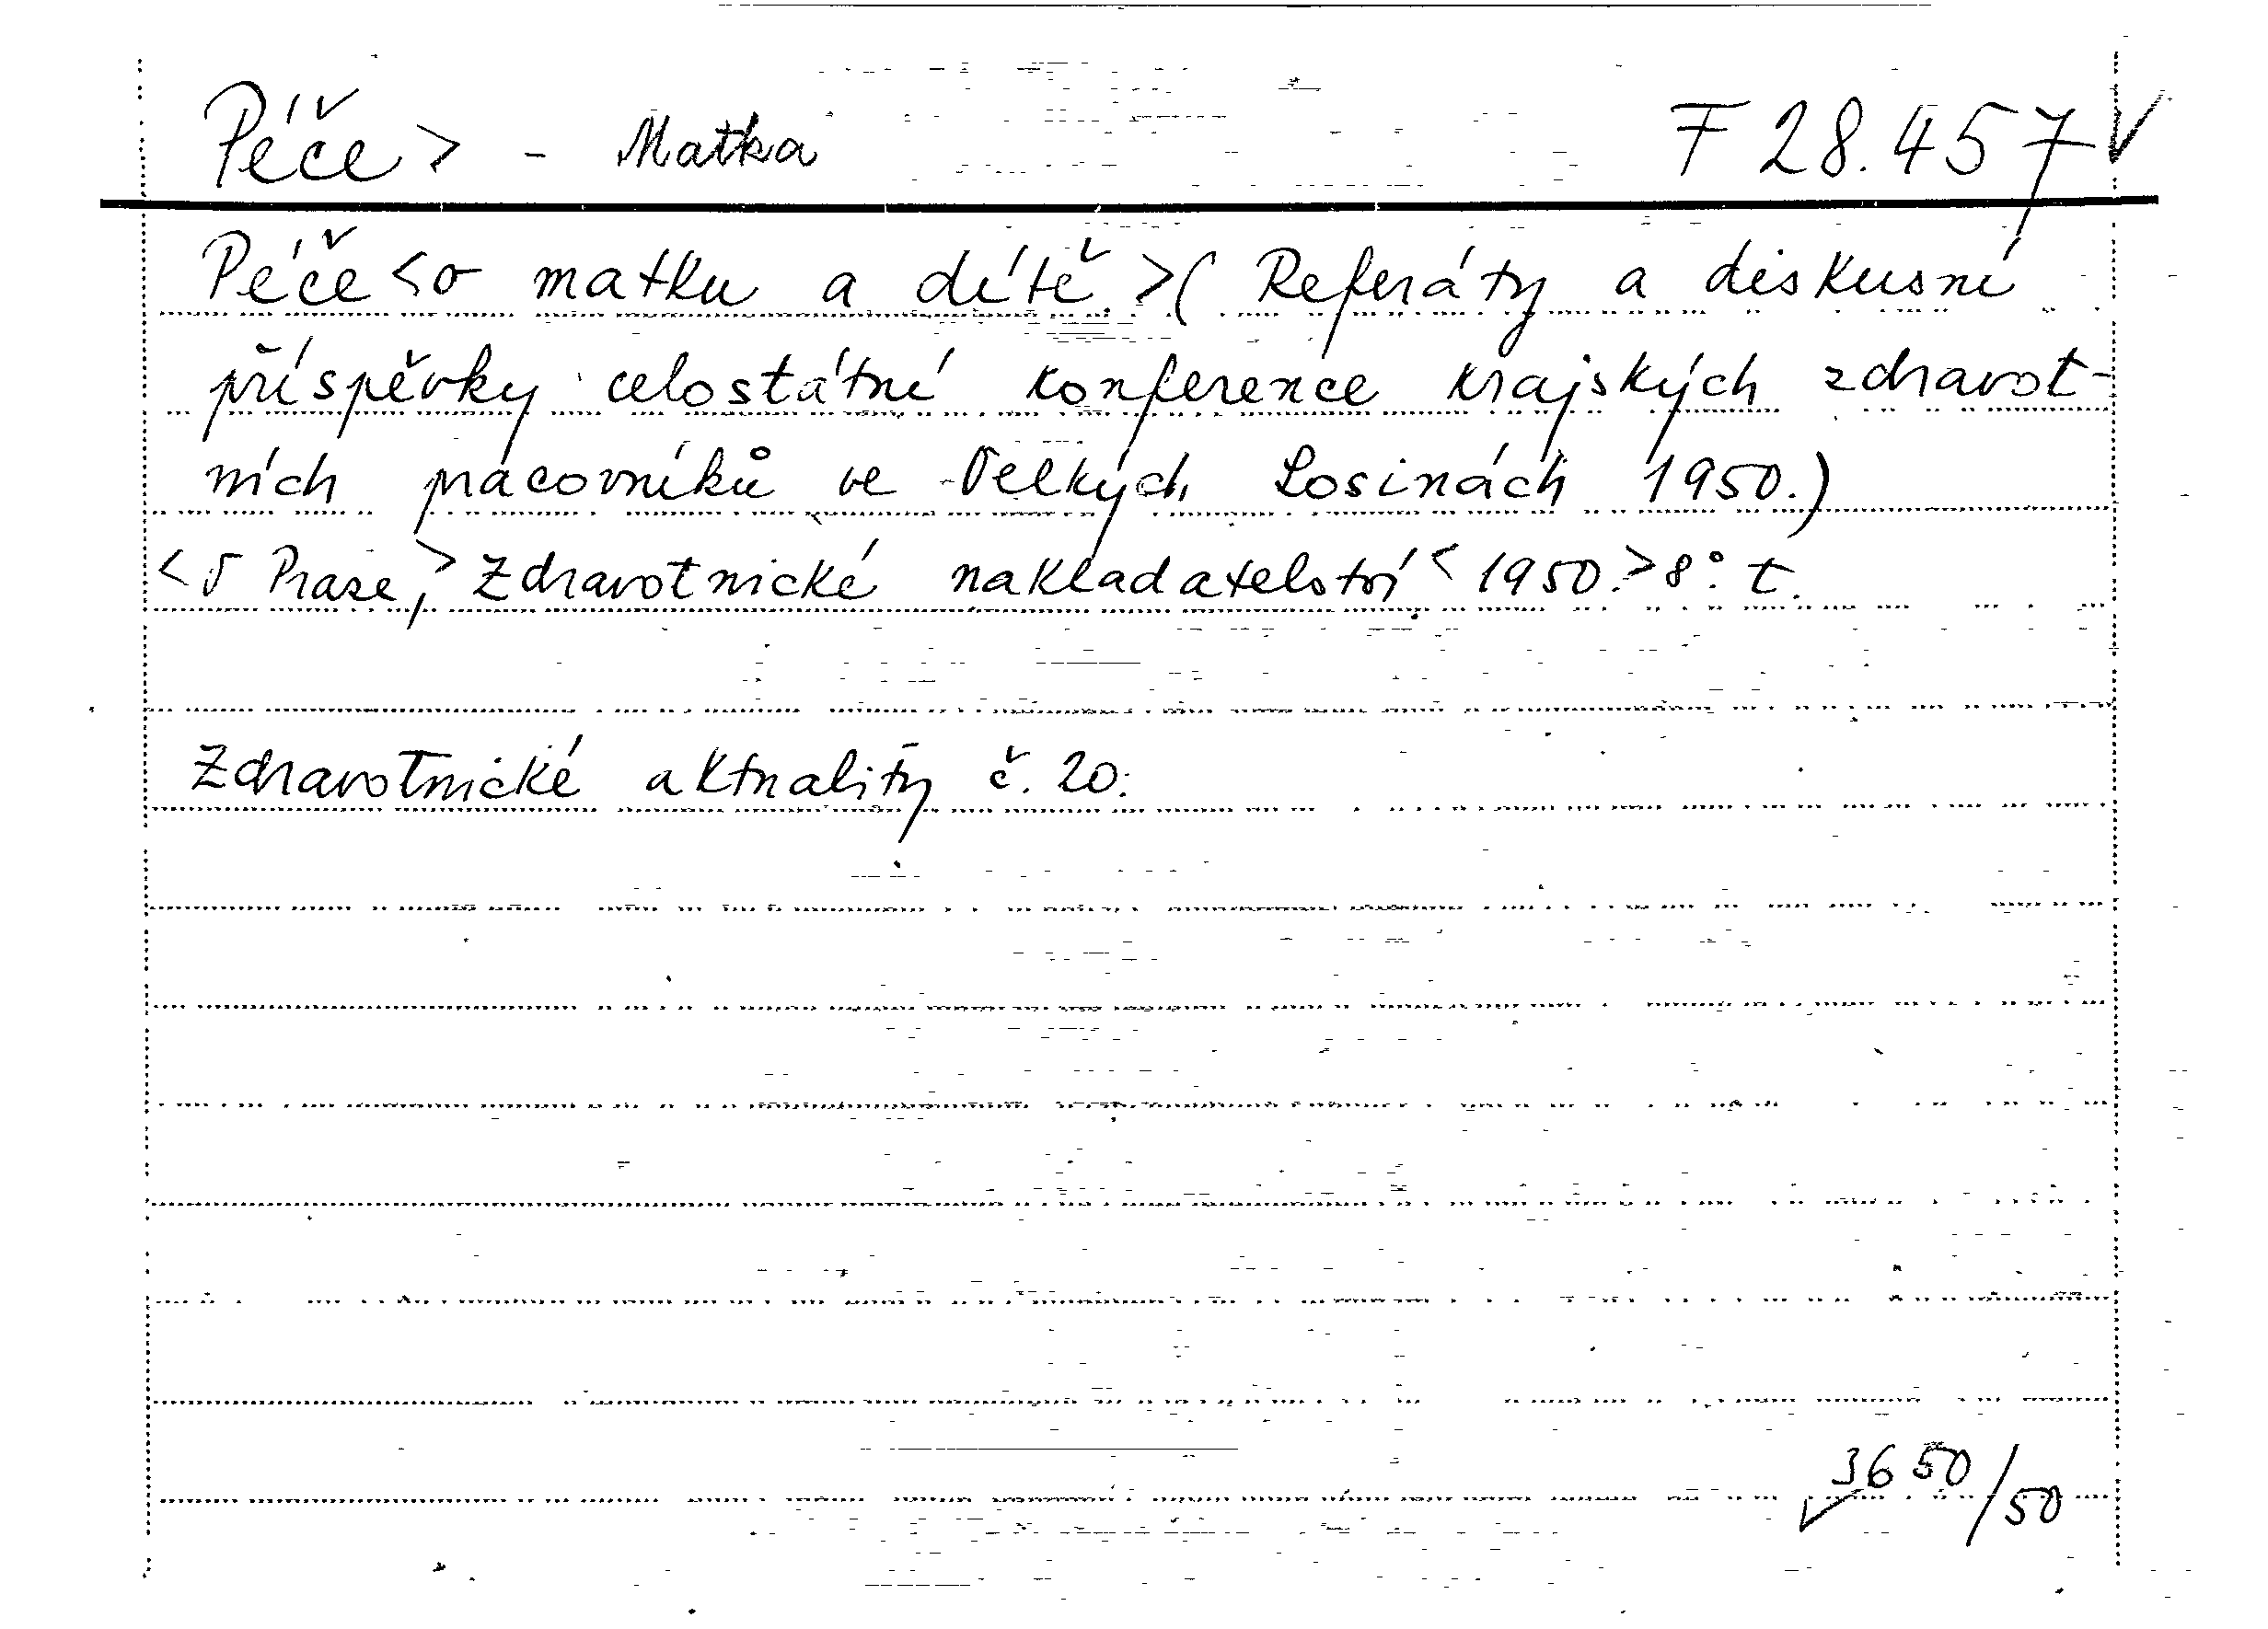 Péče > - Matka F 28.457 ✓
Péče < o matku a dítě. > ( Referáty a diskusní
příspěvky celostátní konference krajských zdravot-
ních pracovníků ve Velkých Losinách 1950.)
< V Praze, > Zdravotnické nakladatelství < 1950. > 8° t.
Zdravotnické aktuality č. 20.
✓ 3650/50